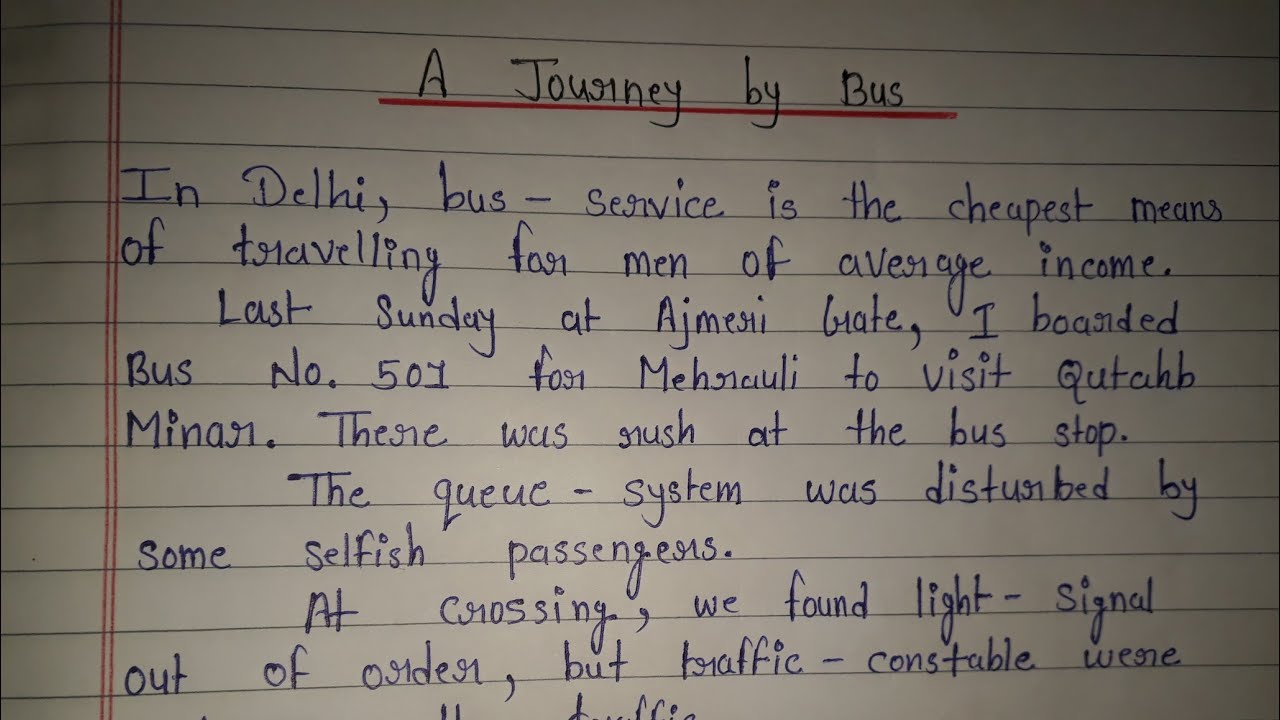 A Journey by Bus
In Delhi, bus - service is the cheapest means
of travelling for men of average income.
Last Sunday at Ajmeri Gate, I boarded
Bus No. 501 for Mehrauli to visit Qutahb
Minar. There was rush at the bus stop.
The queue - system was disturbed by
some selfish passengers.
At crossing, we found light - signal
out of order, but traffic - constable were
traffic